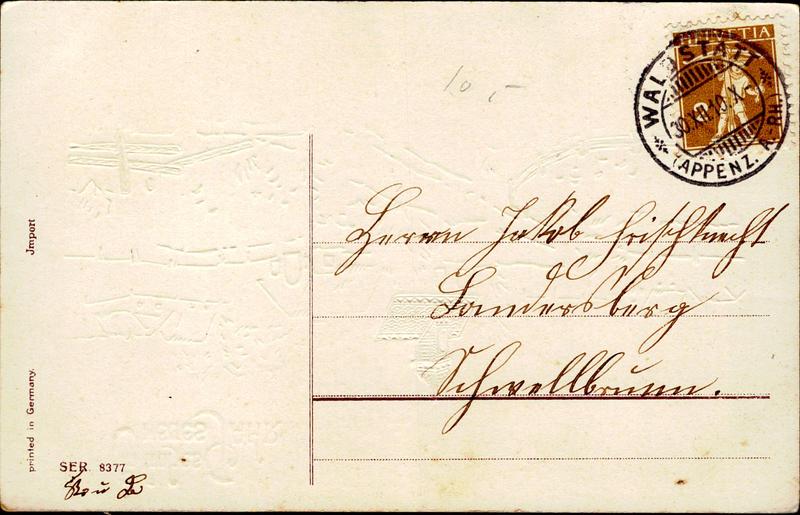 10,-
HELVETIA
WALDSTATT
30.XII.10.X-
(APPENZ. A.-RH.)
Herrn Jakob Frischknecht
Landersberg
Schwellbrunn.
Jmport
printed in Germany.
SER. 8377